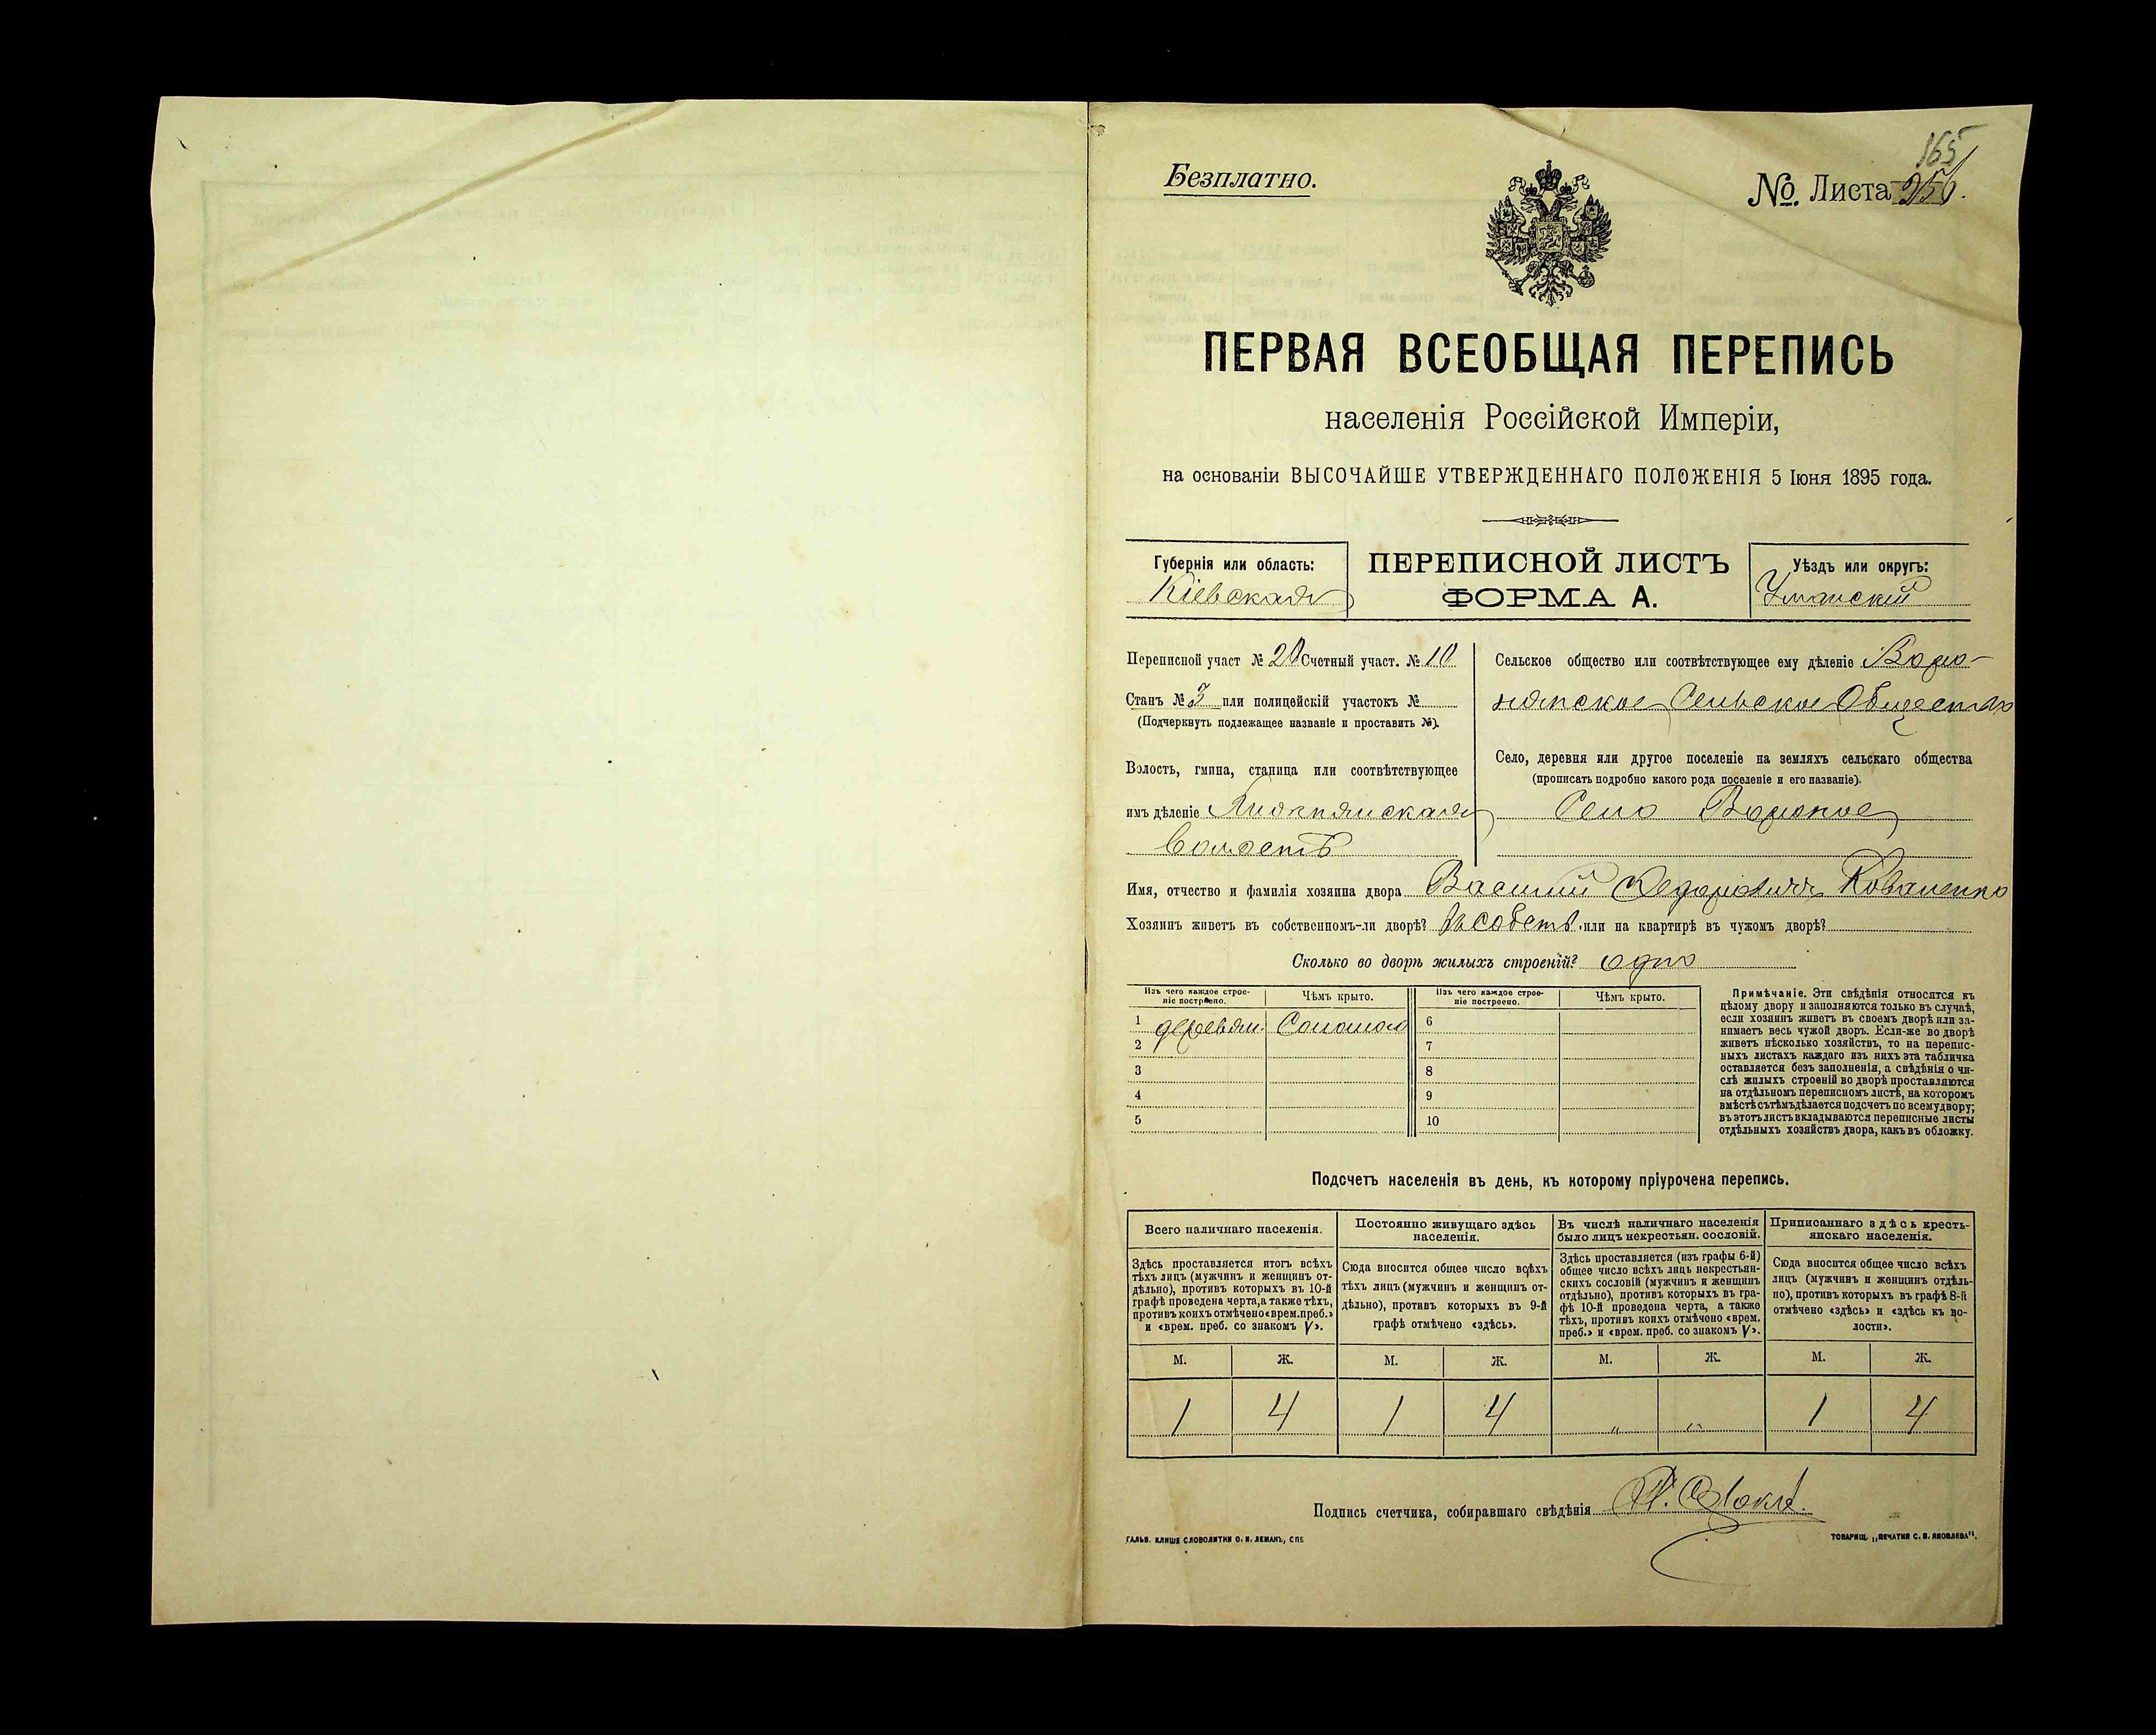 165
Безплатно.
№. Листа 256.
ПЕРВАЯ ВСЕОБЩАЯ ПЕРЕПИСЬ
населенія Россійской Имперіи,
на основаніи ВЫСОЧАЙШЕ УТВЕРЖДЕННАГО ПОЛОЖЕНІЯ 5 Іюня 1895 года.
Губернія или область:
Кіевская
ПЕРЕПИСНОЙ ЛИСТЪ
ФОРМА А.
Уѣздъ или округъ:
Уманскій
Переписной участ № 20 Счетный участ. № 10
Станъ № 3 или полицейскій участокъ №
(Подчеркнуть подлежащее названіе и проставить №).
Волость, гмина, станица или соотвѣтствующее
имъ дѣленіе
Волость
Сельское общество или соотвѣтствующее ему дѣленіе Воро-
нянское Сельское Общество
Село, деревня или другое поселеніе на земляхъ сельскаго общества
(прописать подробно какого рода поселеніе и его названіе).
Село Вороное
Имя, отчество и фамилія хозяина двора Василий Федоровичъ Коваленко
Хозяинъ живетъ въ собственномъ-ли дворѣ? въ собств. или на квартирѣ въ чужомъ дворѣ?
Сколько во дворѣ жилыхъ строеній? одно
Изъ чего каждое строе-
ніе построено.
Чѣмъ крыто.
Изъ чего каждое строе-
ніе построено.
Чѣмъ крыто.
1 деревян. Соломою 6
2 7
3 8
4 9
5 10
Примѣчаніе. Эти свѣдѣнія относятся къ
цѣлому двору и заполняются только въ случаѣ,
если хозяинъ живетъ въ своемъ дворѣ или за-
нимаетъ весь чужой дворъ. Если-же во дворѣ
живетъ нѣсколько хозяйствъ, то на перепис-
ныхъ листахъ каждаго изъ нихъ эта табличка
оставляется безъ заполненія, а свѣдѣнія о чи-
слѣ жилыхъ строеній во дворѣ проставляются
на отдѣльномъ переписномъ листѣ, на которомъ
вмѣстѣ съ тѣмъ дѣлается подсчетъ по всему двору;
въ этотъ листъ вкладываются переписные листы
отдѣльныхъ хозяйствъ двора, какъ въ обложку.
Подсчетъ населенія въ день, къ которому пріурочена перепись.
Всего наличнаго населенія.
Здѣсь проставляется итогъ всѣхъ
тѣхъ лицъ (мужчинъ и женщинъ от-
дѣльно), противъ которыхъ въ 10-й
графѣ проведена черта, а также тѣхъ,
противъ коихъ отмѣчено «врем. преб.»
и «врем. преб. со знакомъ V».
Постоянно живущаго здѣсь
населенія.
Сюда вносится общее число всѣхъ
тѣхъ лицъ (мужчинъ и женщинъ от-
дѣльно), противъ которыхъ въ 9-й
графѣ отмѣчено «здѣсь».
Въ числѣ наличнаго населенія
было лицъ некрестьян. сословій.
Здѣсь проставляется (изъ графы 6-й)
общее число всѣхъ лицъ некрестьян-
скихъ сословій (мужчинъ и женщинъ
отдѣльно), противъ которыхъ въ гра-
фѣ 10-й проведена черта, а также
тѣхъ, противъ коихъ отмѣчено «врем.
преб.» и «врем. преб. со знакомъ V».
Приписаннаго здѣсь кресть-
янскаго населенія.
Сюда вносится общее число всѣхъ
лицъ (мужчинъ и женщинъ отдѣль-
но), противъ которыхъ въ графѣ 8-й
отмѣчено «здѣсь» и «здѣсь къ во-
лости».
М. Ж. М. Ж. М. Ж. М. Ж.
1 4 1 4 " " 1 4
Подпись счетчика, собиравшаго свѣдѣнія
ГАЛЬВ. КЛИШЕ СЛОВОЛИТНИ О. И. ЛЕМАНЪ, СПБ
ТОВАРИЩ. „ПЕЧАТНЯ С. П. ЯКОВЛЕВА".